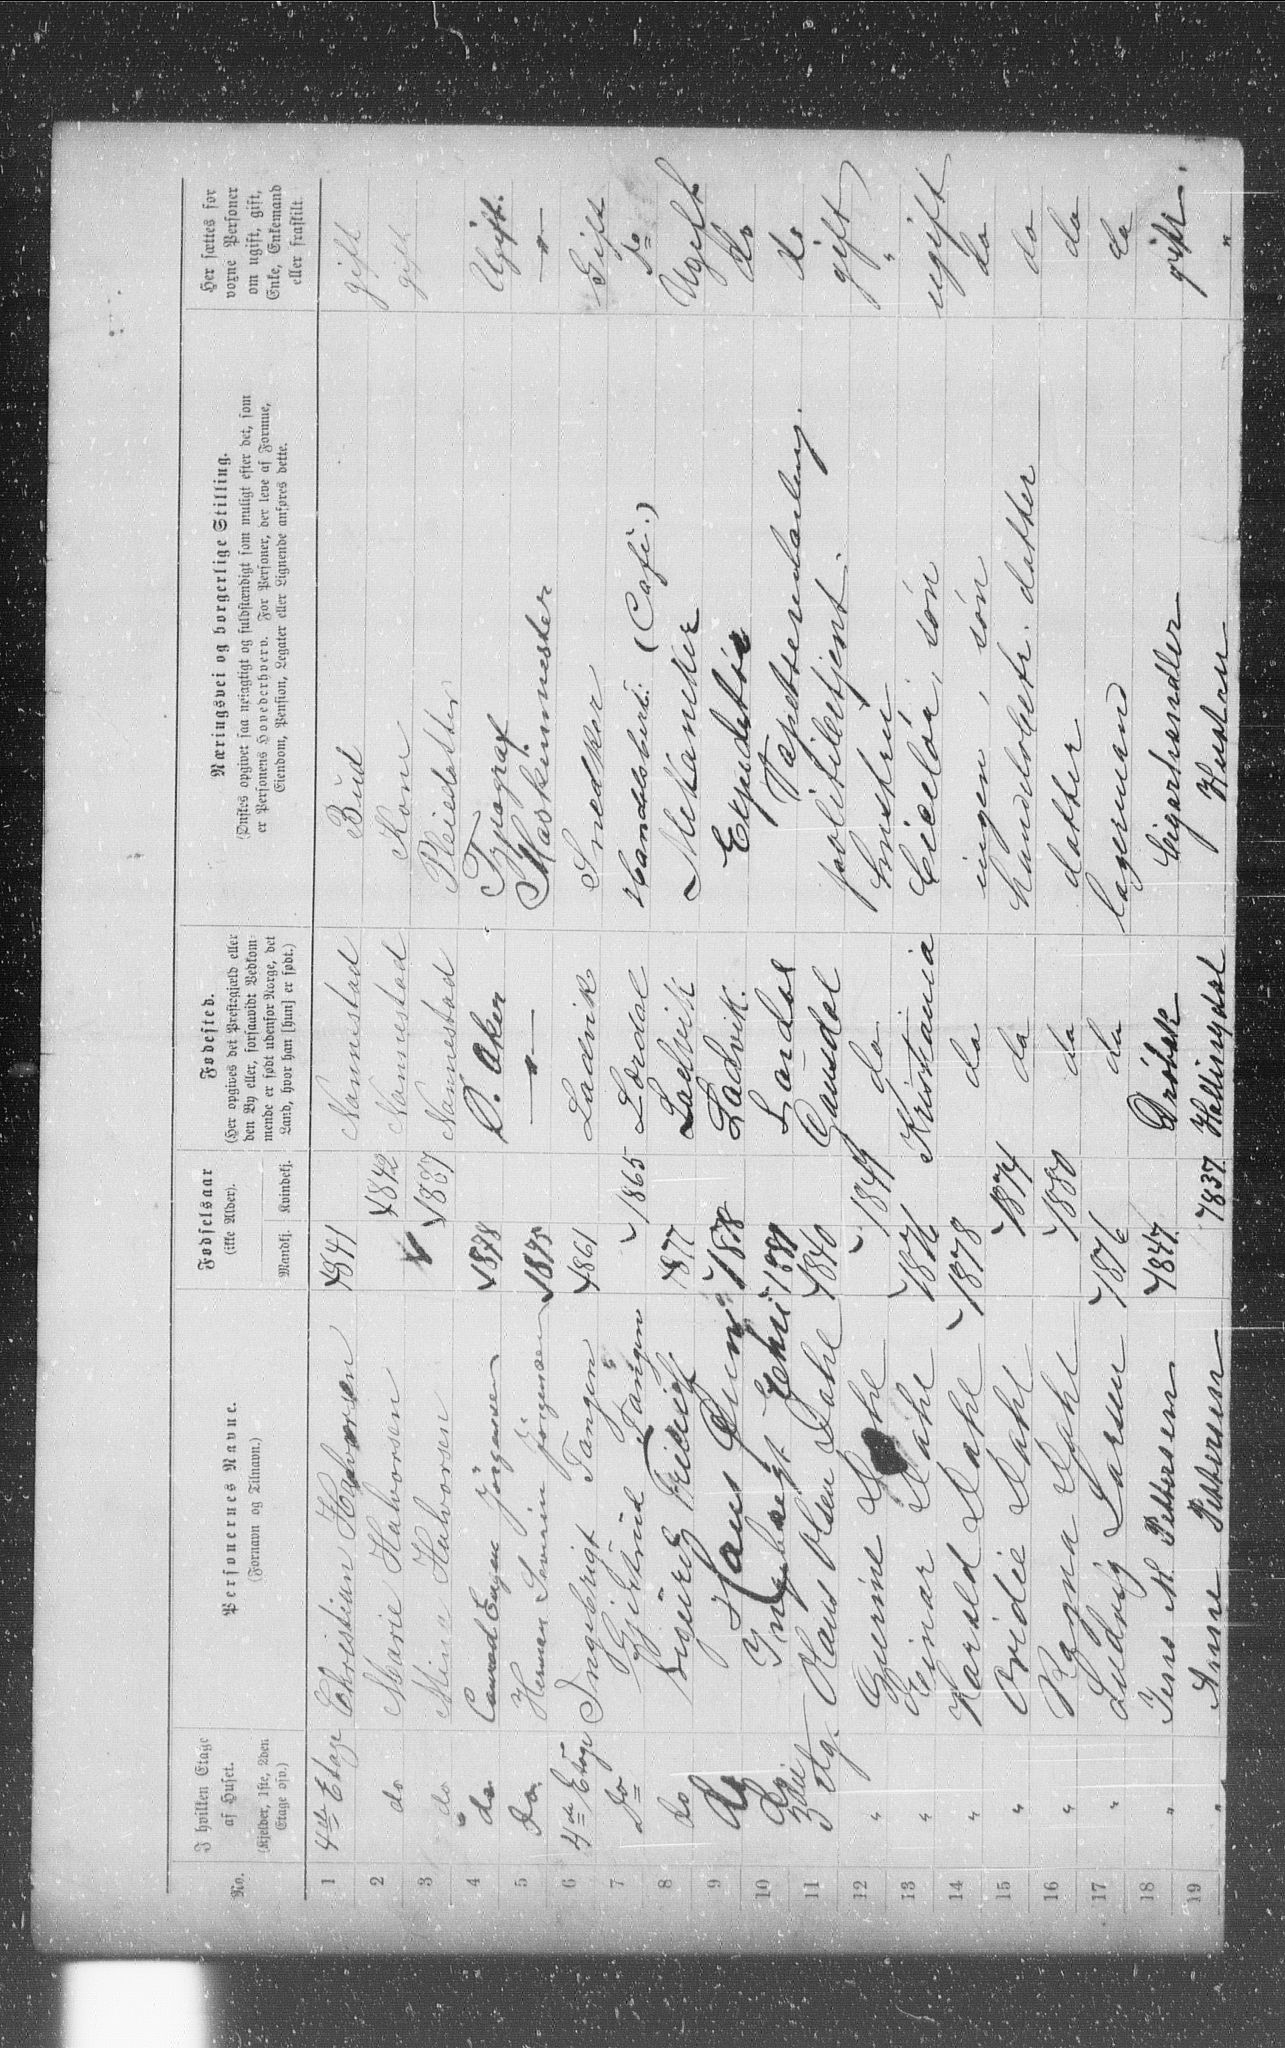 No.
I hvilken Etage af Huset. (Kjelder, 1ste, 2den Etage osv.)
Personernes Navne. (Fornavn og Tilnavn.)
Fødselsaar (ikke Alder). Mandkj. Kvindekj.
Fødested. (Her opgives det Prestegjeld eller den By eller, forsaavidt Vedkommende er født udenfor Norge, det Land, hvor han [hun] er født.)
Næringsvei og borgerlige Stilling. (Ønskes opgivet saa nøiagtigt og fuldstændigt som muligt efter det, som er Personens Hovederhverv. For Personer, der leve af Formue, Eiendom, Pension, Legater eller Lignende anføres dette.
Her sættes for voxne Personer om ugift, gift, Enke, Enkemand eller fraskilt.
1 4de Etage Christian Halvorsen 1841 Nannestad Bud gift
2 do Marie Halvorsen 1842 Nannestad Kone gift
3 do Mina Halvorsen 1887 Nannestad Pleiedatter
4 do Conrad Eugen Jörgensen 1878 Ø. Aker Typograf Ugift.
5 do. Herman Severin Jörgensen 1875 — " — Maskinmester — " —
6 4de Etage Ingebrigt Tangen 1861 Ladvik Snedker Gift
7 do Gjertrud Tangen 1865 Lærdal Handelsbert: (Cafe.) do
8 do Sigurd Fredrich 1877 Ladvik Mekaniker Ugift
9 do Hans 1878 Ladvik. Expeditör do
10 do Ingebregt 1881 Lardal Tapetserdarling. do
11 3die Etg. Olaus Olsen Dahl 1840 Gausdal politibetjent. gift
12 " Gurine Dahl 1849 do hustru "
13 " Einar Dahl 1876 Kristiania Ciselör, sön ugift
14 " Harald Dahl 1878 do ingen, sön do
15 " Ovidie Dahl 1874 do handelsbestr. datter do
16 " Ragna Dahl 1880 do datter do
17 " Ludvig Larsen 1876 do lagermand do
18 " Jens M. Pettersen 1847 Dröbak Cigarhandler gift.
19 " Anne Pettersen 1837 Hallingdal Hustru "